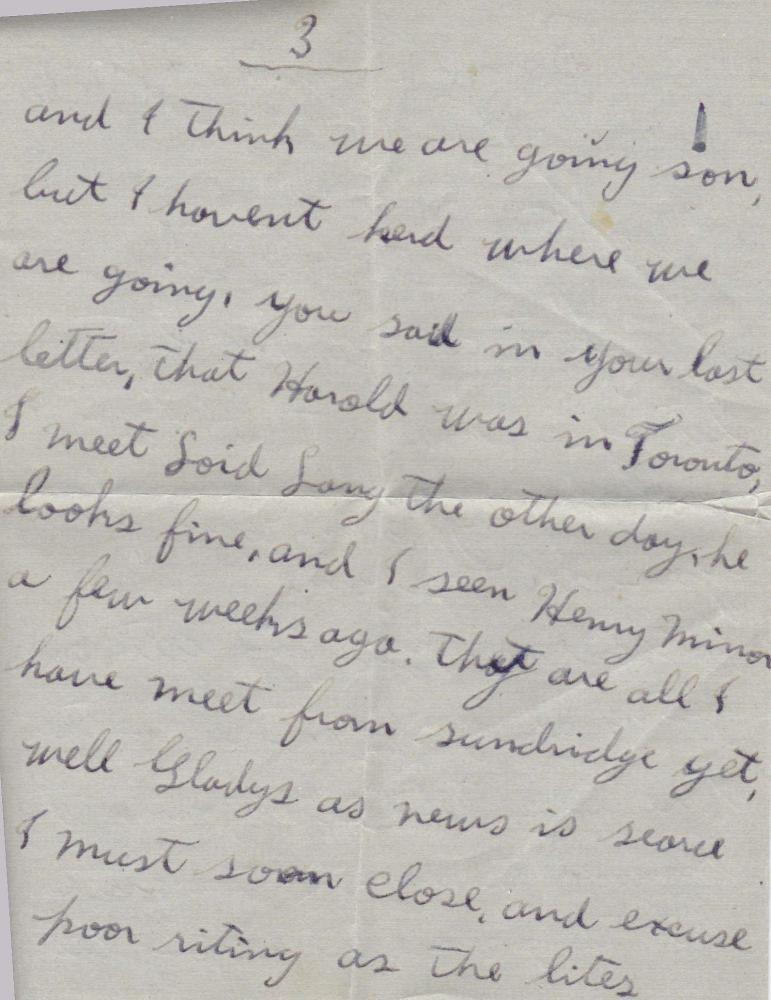 3
and I think we are going son,
but I havent herd where we
are going. you said in your last
letter, that Harold was in Toronto,
I meet Loid Lang the other day, he
looks fine, and I seen Henry Minor
a few weeks ago. They are all I
have meet from sundridge yet,
well Gladys as news is scarce
I must soon close, and excuse
poor riting as the lites